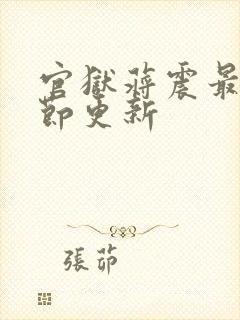 官獄蔣震最
節更新
張茆